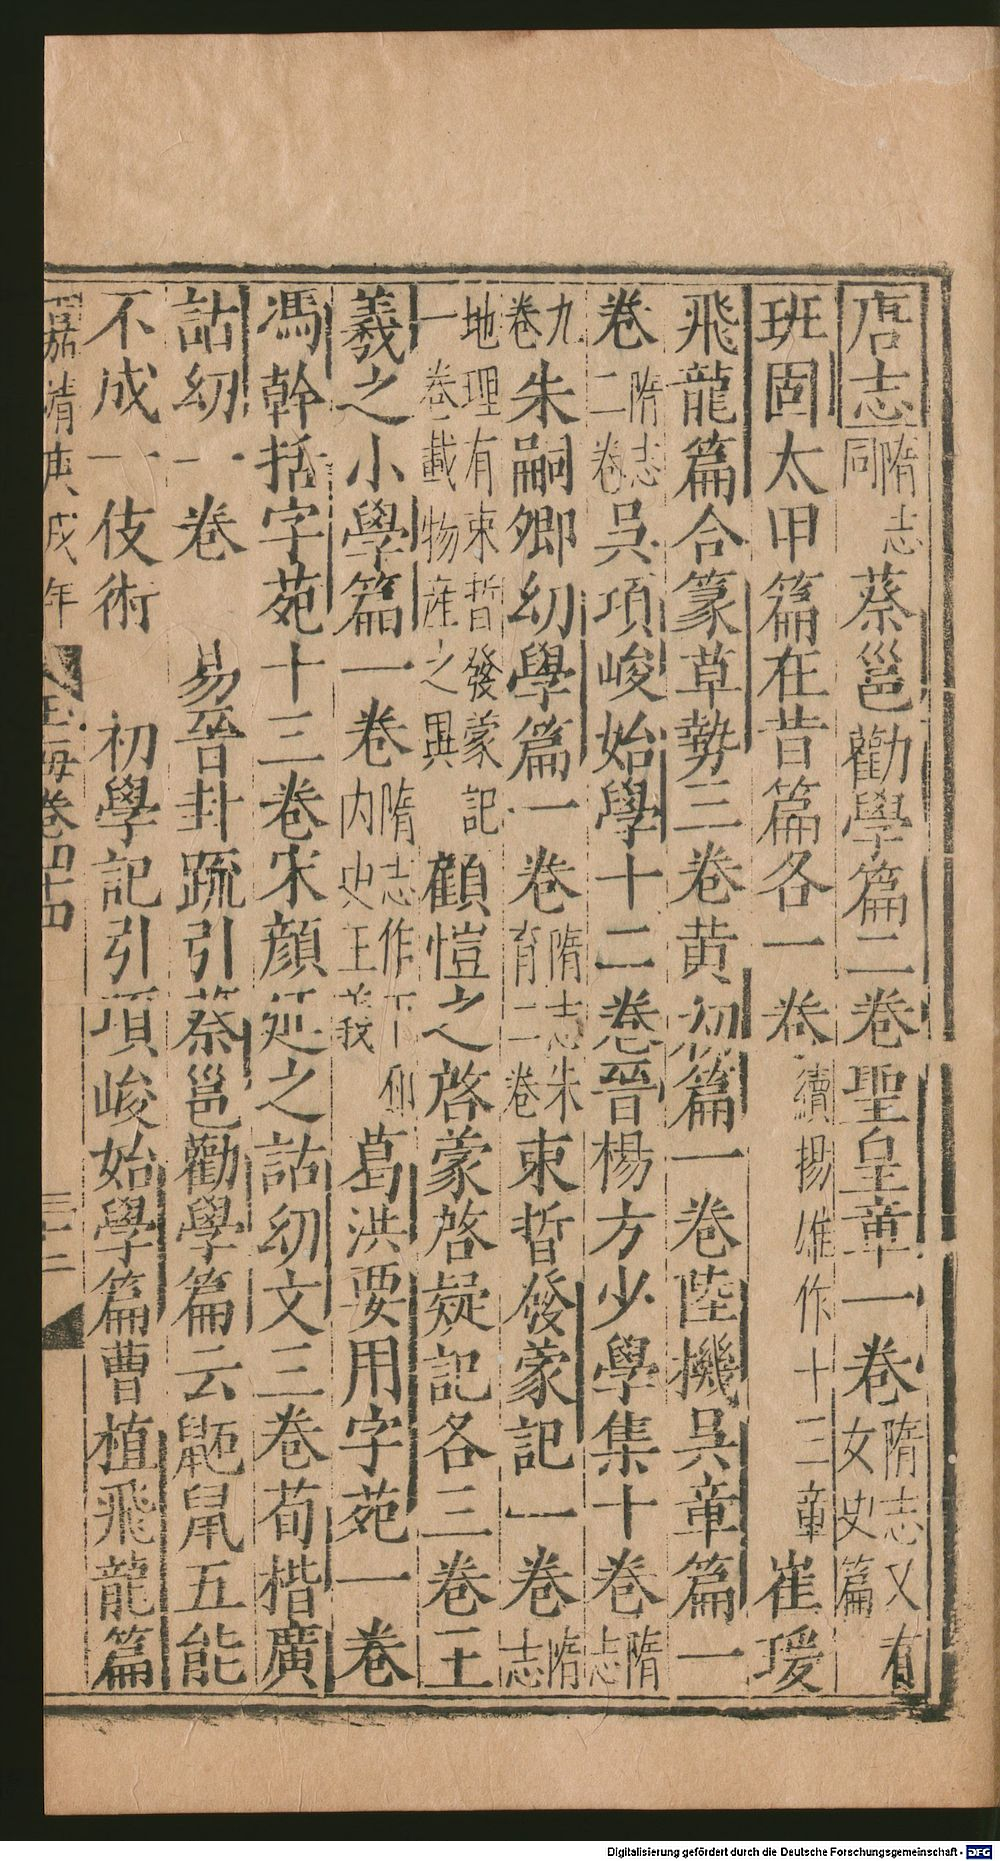 唐志隋志同蔡邕勸學篇二卷聖皇章一卷隋志又有女史篇
班固太甲篇在昔篇各一卷續揚雄作十三章崔瑗
飛龍篇合篆草勢三卷黄初篇一卷陸機吳章篇一
卷隋志二卷吳項峻始學十二卷晉楊方少學集十卷隋志
九卷朱嗣卿幼學篇一卷隋志朱育二卷束晳發蒙記一卷隋志
地理有束晳發蒙記一卷載物産之異顧愷之啓蒙啓疑記各三卷王
羲之小學篇一卷隋志作下邳内史王羲葛洪要用字苑一卷
馮幹括字苑十三卷宋顔延之詁幼文三卷荀楷廣
詁幼一卷 易晉卦疏引蔡邕勸學篇云鼫鼠五能
不成一伎術 初學記引項峻始學篇曹植飛龍篇
嘉靖庚戌年 玉海卷四十四 三十二
Digitalisierung gefördert durch die Deutsche Forschungsgemeinschaft - DFG